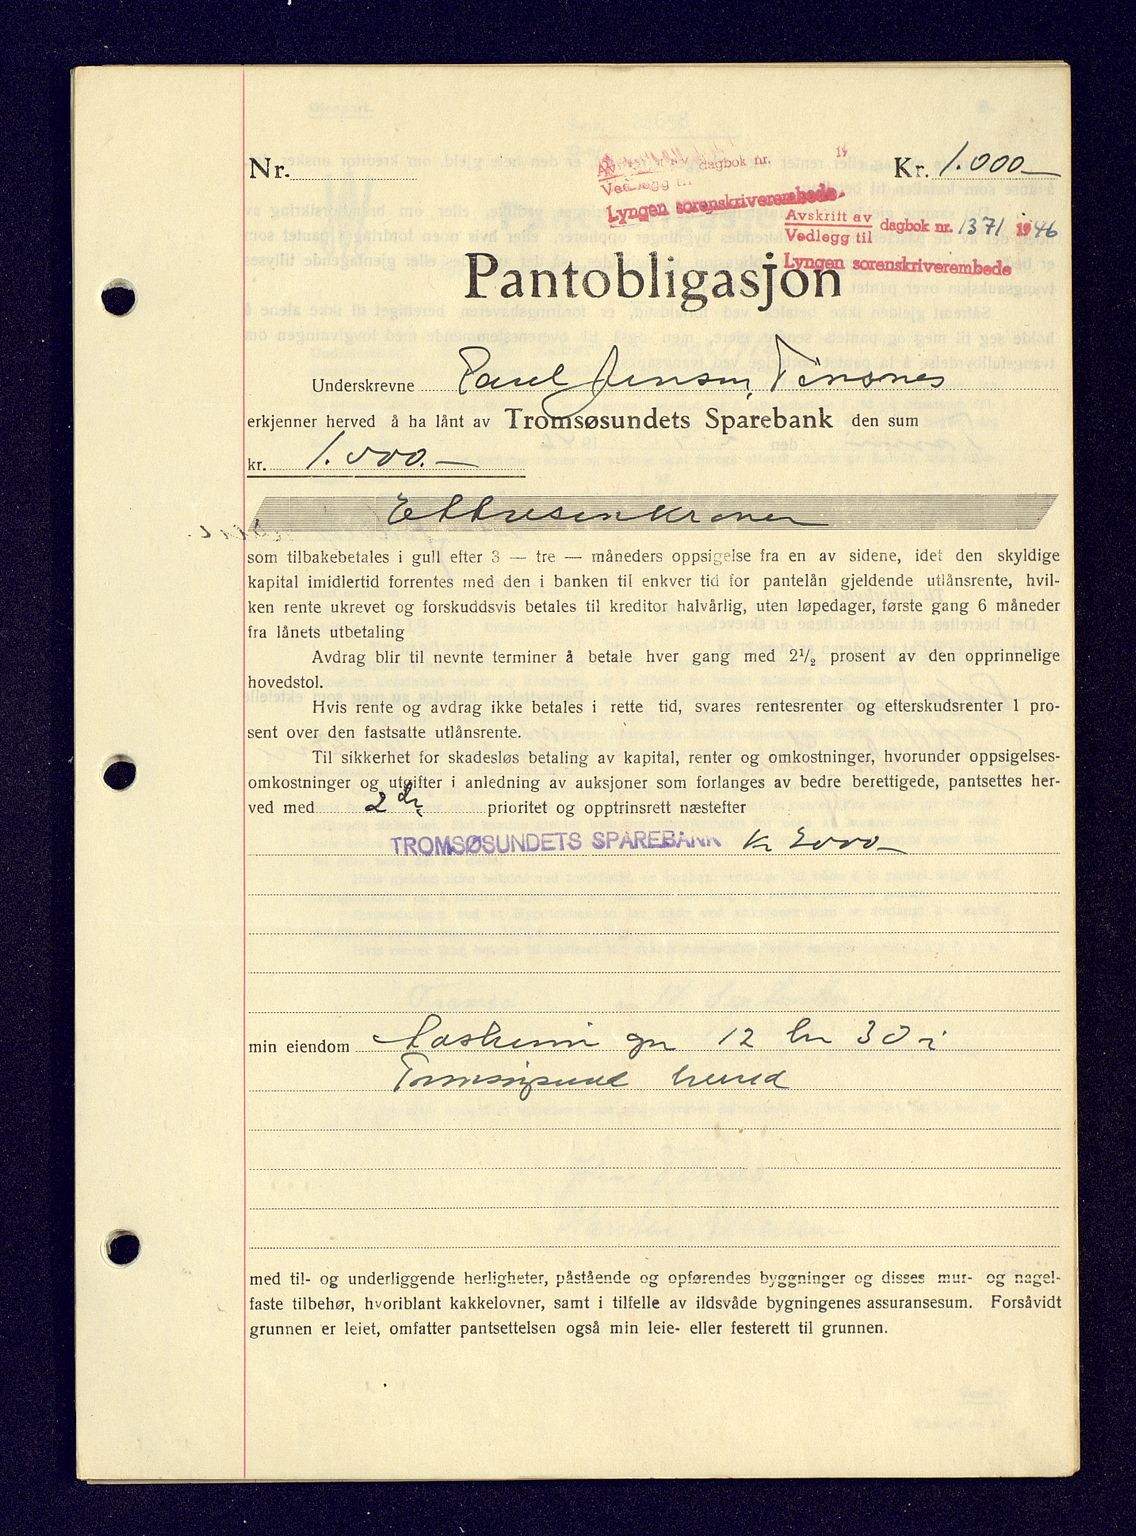 Nr.
Avskrift av dagbok nr. 19
Vedlegg til
Lyngen sorenskriverembede
Kr. 1.000 —
Avskrift av
Vedlegg til dagbok nr. 1371 1946
Lyngen sorenskriverembede
Pantobligasjon
Underskrevne Paul Jensen, Tønsnes
erkjenner herved å ha lånt av Tromsøsundets Sparebank den sum
kr. 1.000. —
Ettusenkroner
som tilbakebetales i gull efter 3 — tre — måneders oppsigelse fra en av sidene, idet den skyldige
kapital imidlertid forrentes med den i banken til enkver tid for pantelån gjeldende utlånsrente, hvil-
ken rente ukrevet og forskuddsvis betales til kreditor halvårlig, uten løpedager, første gang 6 måneder
fra lånets utbetaling
Avdrag blir til nevnte terminer å betale hver gang med 2½ prosent av den opprinnelige
hovedstol.
Hvis rente og avdrag ikke betales i rette tid, svares rentesrenter og etterskudsrenter 1 pro-
sent over den fastsatte utlånsrente.
Til sikkerhet for skadesløs betaling av kapital, renter og omkostninger, hvorunder oppsigelses-
omkostninger og utgifter i anledning av auksjoner som forlanges av bedre berettigede, pantsettes her-
ved med 2 dre prioritet og opptrinsrett næstefter
TROMSØSUNDETS SPAREBANK kr 2000 —
min eiendom Aasheim gnr 12 bnr 30 i
Tromsøysund herred
med til- og underliggende herligheter, påstående og opførendes byggninger og disses mur- og nagel-
faste tilbehør, hvoriblant kakkelovner, samt i tilfelle av ildsvåde bygningenes assuransesum. Forsåvidt
grunnen er leiet, omfatter pantsettelsen også min leie- eller festerett til grunnen.